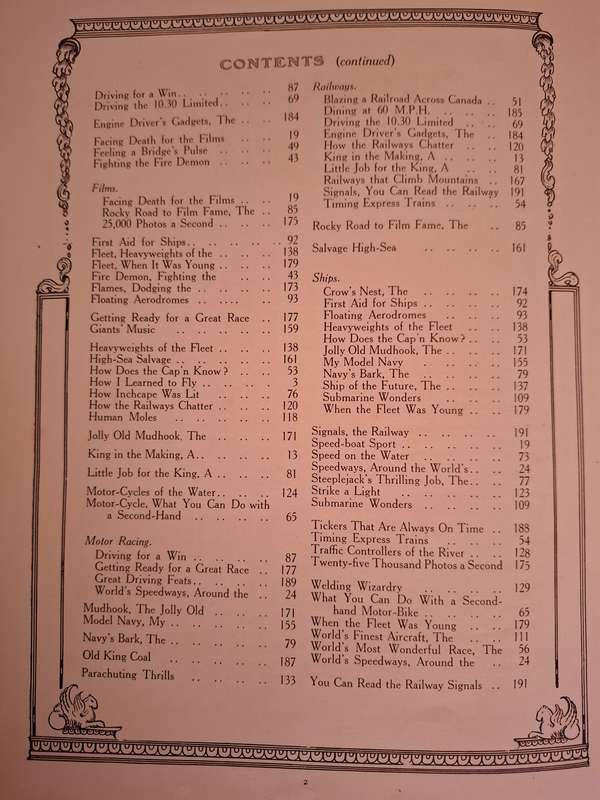 CONTENTS (continued)
Driving for a Win.. .. .. .. .. 87
Driving the 10.30 Limited.. .. .. 69
Engine Driver's Gadgets, The .. .. 184
Facing Death for the Films .. .. 19
Feeling a Bridge's Pulse .. .. .. 49
Fighting the Fire Demon .. .. .. 43
Films.
Facing Death for the Films .. .. 19
Rocky Road to Film Fame, The .. 85
25,000 Photos a Second .. .. .. 175
First Aid for Ships.. .. .. .. .. 92
Fleet, Heavyweights of the .. .. .. 138
Fleet, When It Was Young .. .. .. 179
Fire Demon, Fighting the .. .. 43
Flames, Dodging the .. .. .. .. 173
Floating Aerodromes .. .... .. 93
Getting Ready for a Great Race .. 177
Giants' Music .. .. .. .. .. 159
Heavyweights of the Fleet .. .. .. 138
High-Sea Salvage .. .. .. .. .. 161
How Does the Cap'n Know? .. .. 53
How I Learned to Fly .. .. .. .. 3
How Inchcape Was Lit .. .. .. 76
How the Railways Chatter .. .. .. 120
Human Moles .. .. .. .. .. 118
Jolly Old Mudhook, The .. .. .. 171
King in the Making, A.. .. .. .. 13
Little Job for the King, A .. .. .. 81
Motor-Cycles of the Water.. .. .. 124
Motor-Cycle, What You Can Do with
a Second-Hand .. .. .. .. 65
Motor Racing.
Driving for a Win .. .. .. .. 87
Getting Ready for a Great Race .. 177
Great Driving Feats.. .. .. .. 189
World's Speedways, Around the .. 24
Mudhook, The Jolly Old .. .. .. 171
Model Navy, My .. .. .. .. .. 155
Navy's Bark, The .. .. .. .. .. 79
Old King Coal .. .. .. .. .. 187
Parachuting Thrills .. .. .. .. 133
Railways.
Blazing a Railroad Across Canada .. 51
Dining at 60 M.P.H. .. .. .. 185
Driving the 10.30 Limited .. .. 69
Engine Driver's Gadgets, The .. 184
How the Railways Chatter .. .. 120
King in the Making, A .. .. .. 13
Little Job for the King, A .. .. 81
Railways that Climb Mountains .. 167
Signals, You Can Read the Railway 191
Timing Express Trains .. .. .. 54
Rocky Road to Film Fame, The .. 85
Salvage High-Sea .. .. .. .. 161
Ships.
Crow's Nest, The .. .. .. .. 174
First Aid for Ships .. .. .. .. 92
Floating Aerodromes .. .. .. 93
Heavyweights of the Fleet .. .. 138
How Does the Cap'n Know? .. .. 53
Jolly Old Mudhook, The .. .. .. 171
My Model Navy .. .. .. .. 155
Navy's Bark, The .. .. .. .. 79
Ship of the Future, The .. .. .. 137
Submarine Wonders .. .. .. 109
When the Fleet Was Young .. .. 179
Signals, the Railway .. .. .. .. 191
Speed-boat Sport .. .. .. .. .. 19
Speed on the Water .. .. .. .. 73
Speedways, Around the World's.. .. 24
Steeplejack's Thrilling Job, The.. .. 77
Strike a Light .. .. .. .. .. 123
Submarine Wonders .. .. .. .. 109
Tickers That Are Always On Time .. 188
Timing Express Trains .. .. .. 54
Traffic Controllers of the River .. .. 128
Twenty-five Thousand Photos a Second 175
Welding Wizardry .. .. .. .. .. 129
What You Can Do With a Second-
hand Motor-Bike .. .. .. .. 65
When the Fleet Was Young .. .. 179
World's Finest Aircraft, The .. .. 111
World's Most Wonderful Race, The 56
World's Speedways, Around the .. 24
You Can Read the Railway Signals .. 191
2